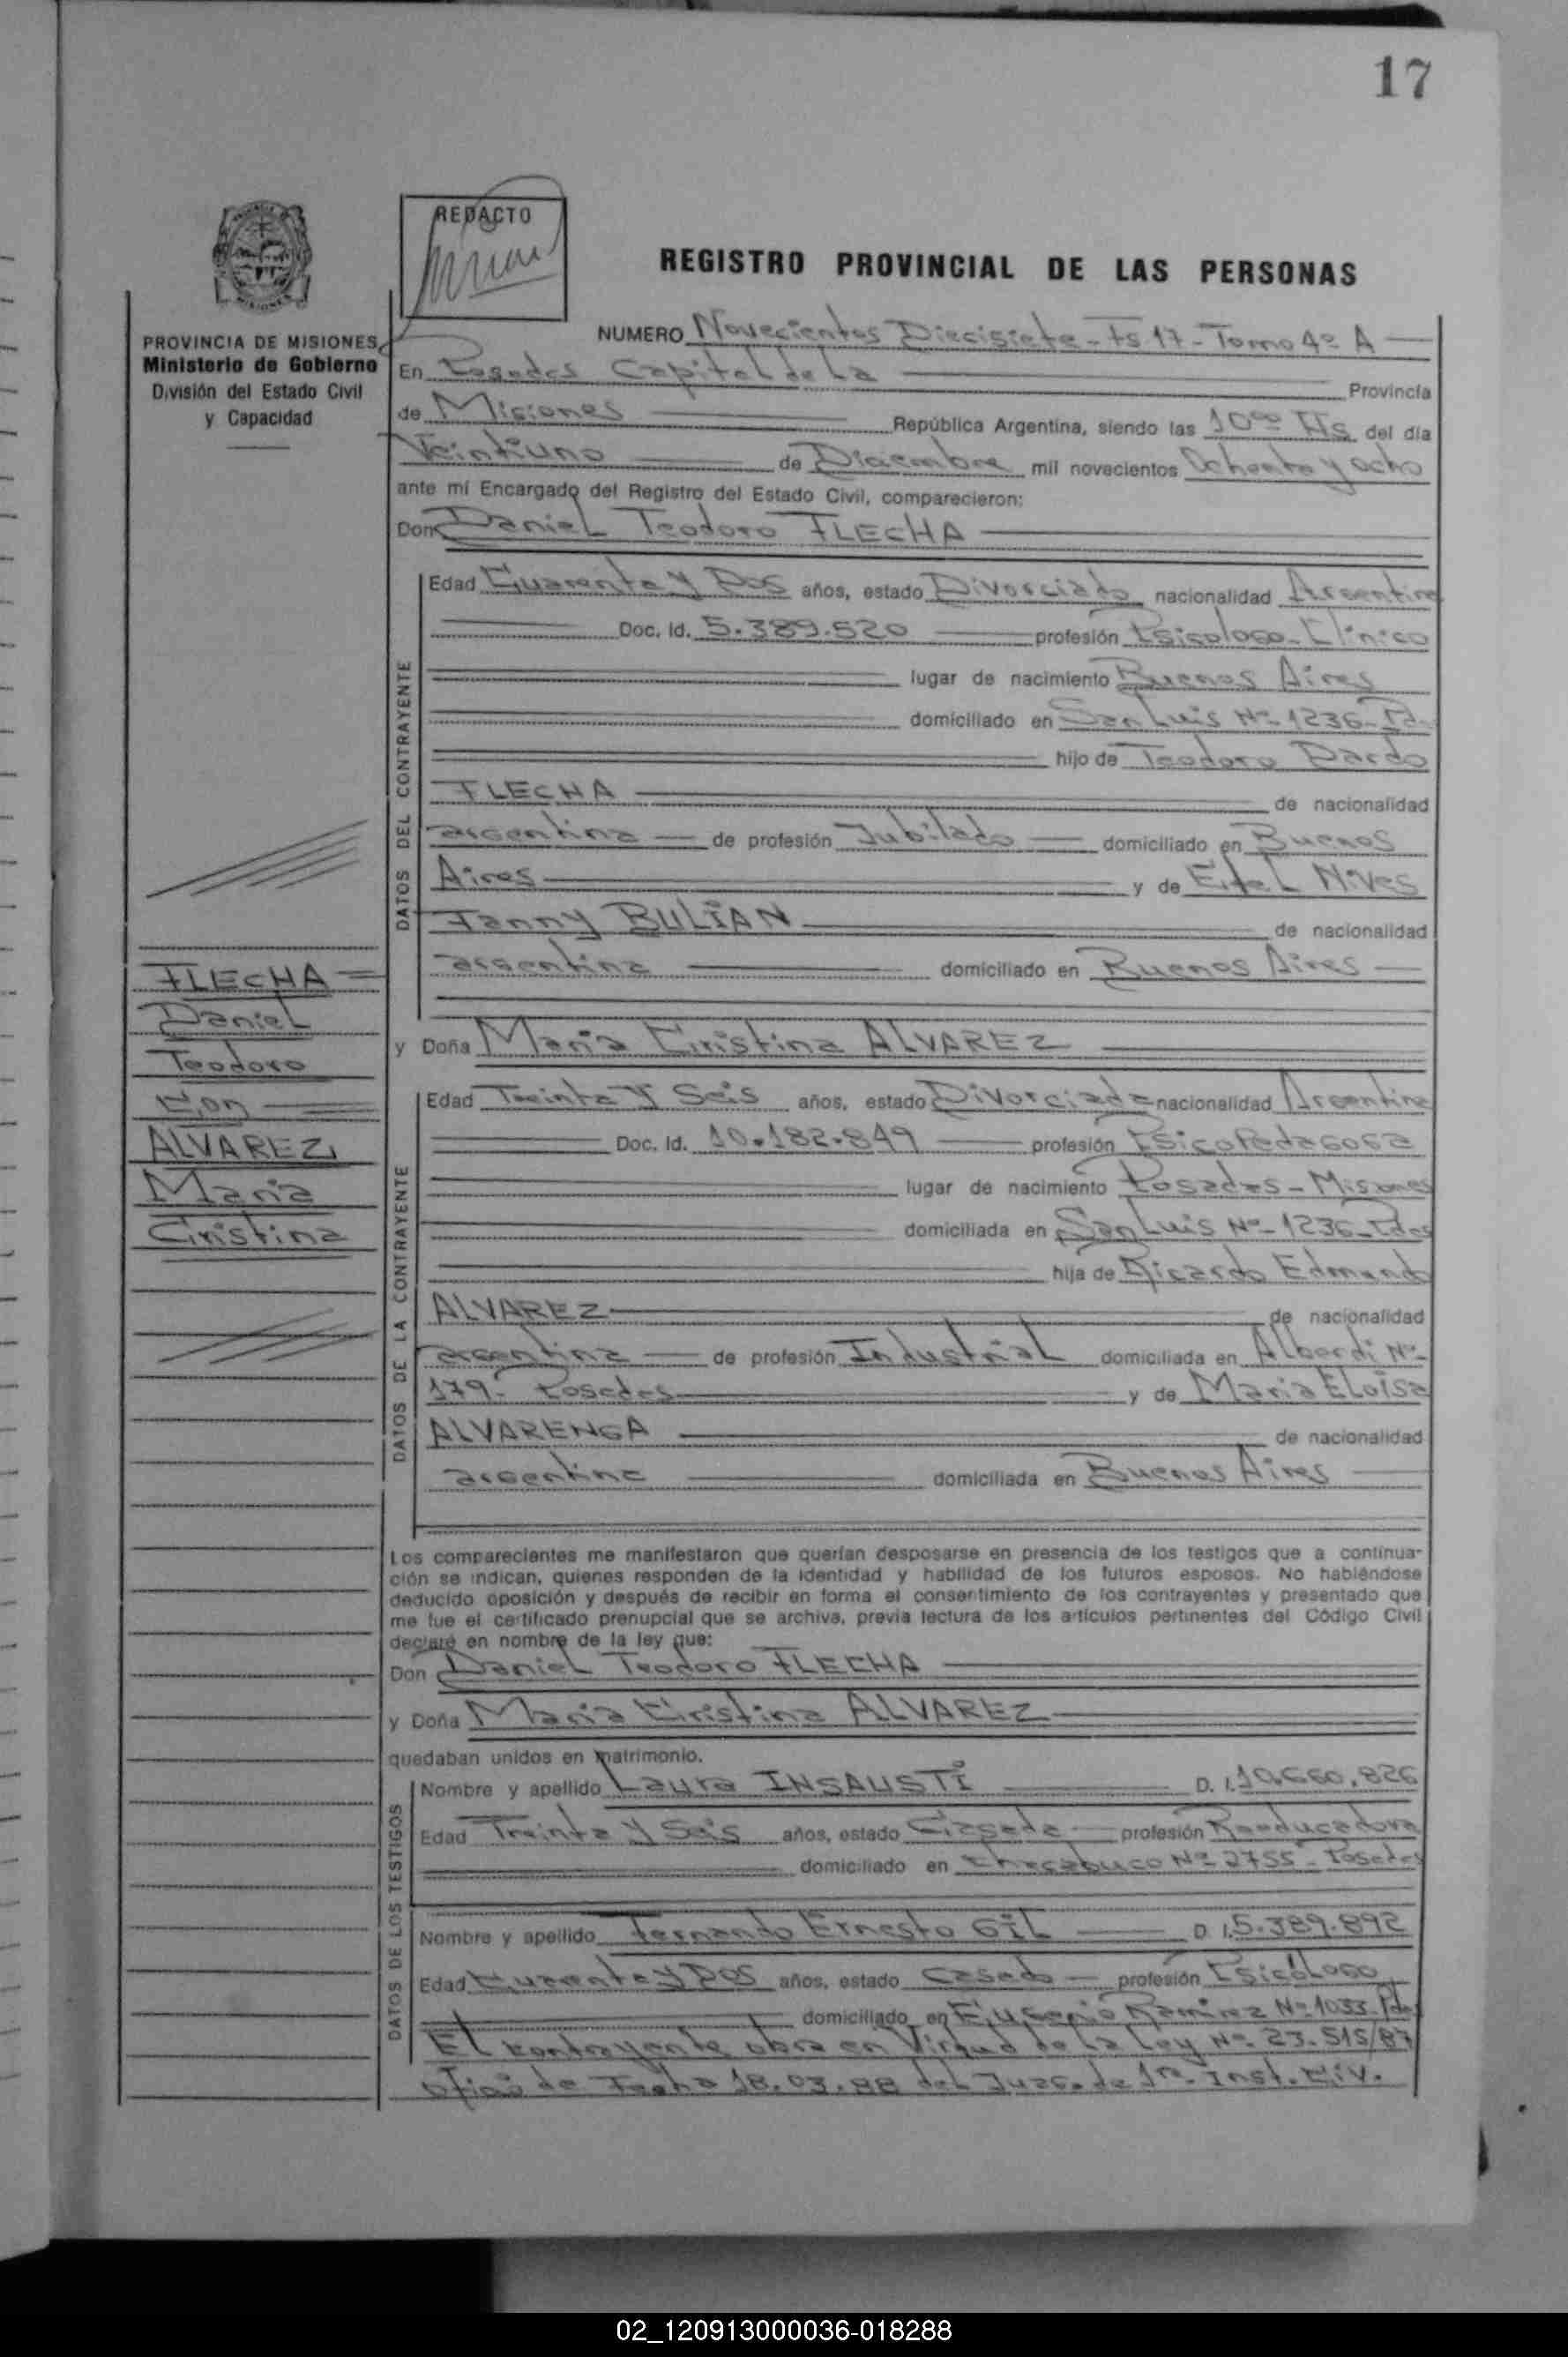 17
REDACTO
REGISTRO PROVINCIAL DE LAS PERSONAS
PROVINCIA DE MISIONES
Ministerio de Gobierno
División del Estado Civil
y Capacidad
NUMERO Novecientos Diecisiete - Fs 17 - Tomo 4º A
En Posadas Capital de La Provincia
de Misiones República Argentina, siendo las 10ºº Hs del día
Veintiuno de Diciembre mil novecientos Ochenta y ocho
ante mí Encargado del Registro del Estado Civil, comparecieron:
Don Daniel Teodoro FLECHA
DATOS DEL CONTRAYENTE
Edad Cuarenta y Dos años, estado Divorciado nacionalidad Argentina
Doc. Id. 5.389.520 profesión Psicologo-Clínico
lugar de nacimiento Buenos Aires
domiciliado en San Luis Nº 1236-Pd.
hijo de Teodoro Dardo
FLECHA de nacionalidad
argentina de profesión Jubilado domiciliado en Buenos
Aires y de Nives
Fanny BULIAN de nacionalidad
argentina domiciliado en Buenos Aires
y Doña Maria Cristina ALVAREZ
DATOS DE LA CONTRAYENTE
Edad Treinta y Seis años, estado Divorciada nacionalidad Argentina
Doc. Id. 10.182.849 profesión Psicopedagoga
lugar de nacimiento Posadas - Misiones
domiciliada en San Luis Nº 1236-Pdas
hija de Ricardo Edmundo
ALVAREZ de nacionalidad
argentina de profesión Industrial domiciliada en Alberdi Nº
179- Posadas y de Maria ELoisa
ALVARENGA de nacionalidad
argentina domiciliada en Buenos Aires
FLECHA
Daniel
Teodoro
Con
ALVAREZ
Maria
Cristina
Los comparecientes me manifestaron que querían desposarse en presencia de los testigos que a continua-
ción se indican, quienes responden de la identidad y habilidad de los futuros esposos. No habiéndose
deducido oposición y después de recibir en forma el consentimiento de los contrayentes y presentado que
me fue el certificado prenupcial que se archiva, previa lectura de los artículos pertinentes del Código Civil
declaré en nombre de la ley que:
Don Daniel Teodoro FLECHA
y Doña Maria Cristina ALVAREZ
quedaban unidos en matrimonio.
DATOS DE LOS TESTIGOS
Nombre y apellido Laura INSAUSTI D. I. 10.660.826
Edad Treinta y Seis años, estado Casada profesión Reeducadora
domiciliado en Chacabuco Nº 2755- Posadas
Nombre y apellido Fernando Ernesto GIL D. I. 5.389.892
Edad Cuarenta y Dos años, estado Casado profesión Psicólogo
domiciliado en Eugenio Ramirez Nº 1033-Pdas
El contrayente obra en Virtud de la Ley Nº 23.515/87
oficio de Fecha 18.03.88 del Juzg. de 1ra. Inst. Civ.
02_120913000036-018288